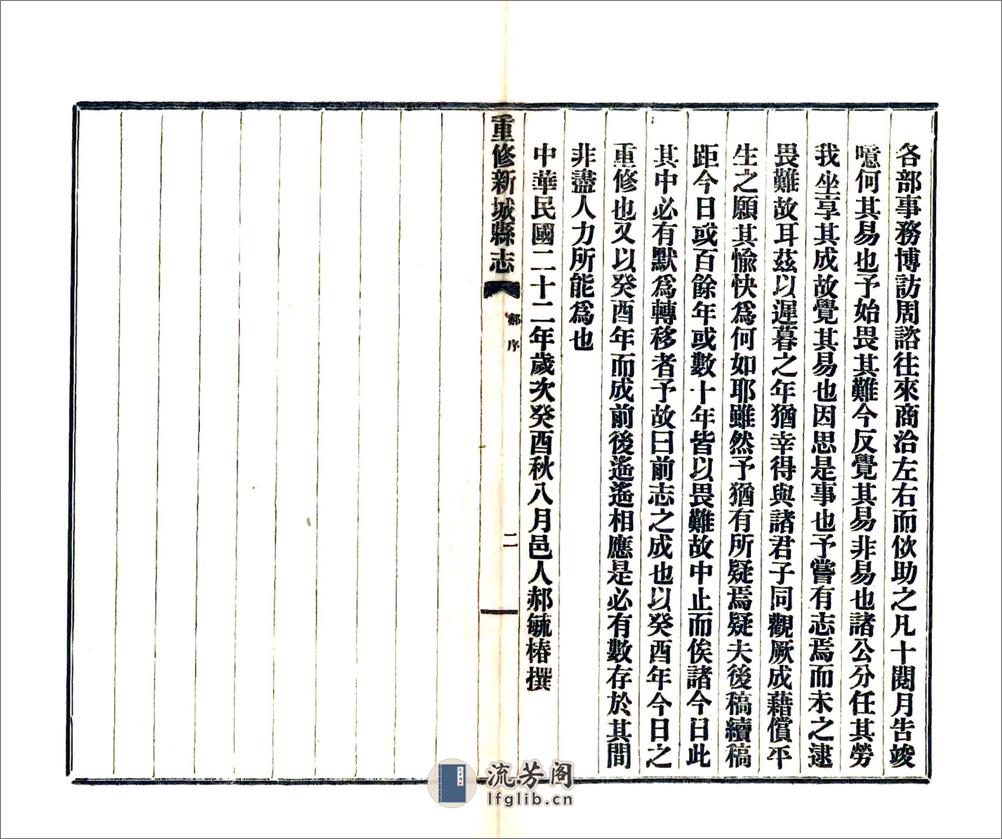 各部事務博訪周諮往來商洽左右而佽助之凡十閱月告竣
噫何其易也予始畏其難今反覺其易非易也諸公分任其勞
我坐享其成故覺其易也因思是事也予嘗有志焉而未之逮
畏難故耳茲以遲暮之年猶幸得與諸君子同觀厥成藉償平
生之願其愉快爲何如耶雖然予猶有所疑焉疑夫後稿續稿
距今日或百餘年或數十年皆以畏難故中止而俟諸今日此
其中必有默爲轉移者予故曰前志之成也以癸酉年今日之
重修也又以癸酉年而成前後遙遙相應是必有數存於其間
非盡人力所能爲也
中華民國二十二年歲次癸酉秋八月邑人郝毓椿撰
重修新城縣志
郝序
二
流芳阁
lfglib.cn